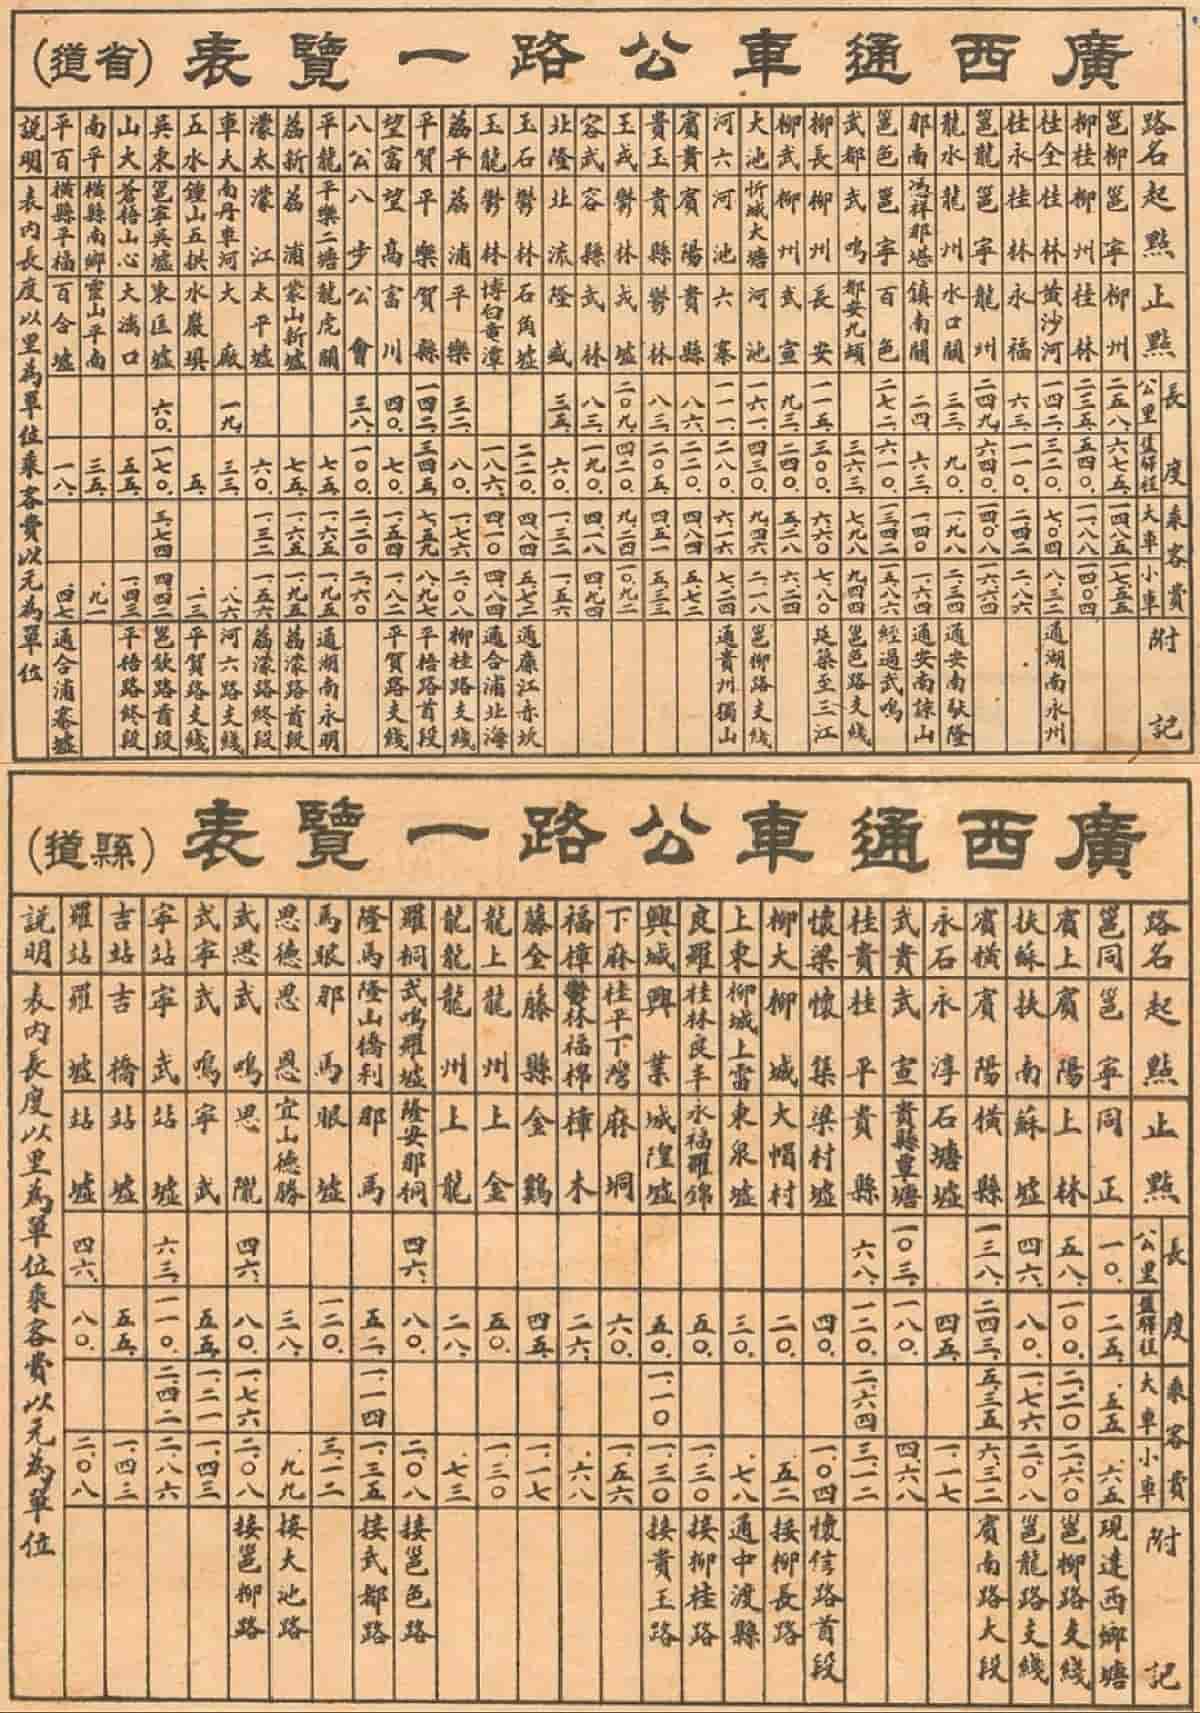 廣西通車公路一覽表(省道)
路名 起點 止點 長度 公里 乘客費 大車 小車 附記
邕柳 邕寧 柳州 二五八、 六七五、 一四、八五 一七、五五
柳桂 柳州 桂林 二三五、 五四〇、 一一、八八 一四、〇四
桂全 桂林 黃沙河 一四二、 三二〇、 七、〇四 八、三二 通湖南永州
桂永 桂林 永福 六三、 一一〇、 二、四二 二、八六
邕龍 邕寧 龍州 二四九、 六四〇、 一四、〇八 一六、六四
龍水 龍州 水口關 三三、 九〇、 一、九八 二、三四 通安南馱隆
那南 憑祥那堪 鎮南關 二四、 六三、 一、四〇 一、六四 通安南諒山
邕色 邕寧 百色 二七二、 六一〇、 一三、四二 一五、八六 經過武鳴
武都 武鳴 都安九頓 三六三、 七、九八 九、四四 邕色路支綫
柳長 柳州 長安 一一五、 三〇〇、 六、六〇 七、八〇 延築至三江
柳武 柳州 武宣 九三、 二四〇、 五、二八 六、二四
大池 忻城大塘 河池 一六一、 四三〇、 九、四六 二、一八 邕柳路支綫
河六 河池 六寨 一一一、 二八〇、 六、一六 通貴州獨山
賓貴 賓陽 貴縣 八六、 二二〇、 四、八四 五、七二
貴玉 貴縣 鬱林 八三、 二〇五、 四、五一 五、三三
玉戎 鬱林 戎墟 二〇九、 四二〇、 九、二四 一〇、九二
容武 容縣 武林 八三、 一九〇、 四、一八 四、九四
北隆 北流 隆盛 三五、 六〇、 一、三二 一、五六
玉石 鬱林 石角墟 二二〇、 四、八四 五、七二 通廉江赤坎
玉龍 鬱林 博白龍潭 一八六、 四、一〇 四、八四 通合浦北海
荔平 荔浦 平樂 三二、 八〇、 一、七六 二、〇八 柳桂路支綫
平賀 平樂 賀縣 一四二、 三四五、 七、五九 八、九七 平梧路首段
望富 望高 富川 四〇、 七〇、 一、五四 一、八二 平賀路支綫
八公 八步 公會 三八、 一〇〇、 二、二〇 二、六〇
平龍 平樂二塘 龍虎關 七五、 一、六五 一、九五 通湖南永明
荔新 荔浦 蒙山新墟 七五、 一、六五 一、九五 荔濛路首段
濛太 濛江 太平墟 六〇、 一、三二 一、五六 荔濛路終段
車大 南丹車河 大廠 一九、 三三、 、八六 河六路支綫
五水 鐘山五拱 水巖壩 五、 、一三 平賀路支綫
吳東 邕寧吳墟 東匡墟 六〇、 一七〇、 三、七四 四、四二 邕欽路首段
山大 蒼梧山心 大漓口 五五、 一、四三 平梧路終段
南平 橫縣南鄉 靈山平南 三五、 、九一
平百 橫縣平福 百合墟 一八、 、四七 通合浦寨墟
說明 表內長度以里為單位乘客費以元為單位
廣西通車公路一覽表(縣道)
路名 起點 止點 長度 公里 乘客費 大車 小車 附記
邕同 邕寧 同正 一〇、 二五、 、五五 、六五 現達西鄉塘
賓上 賓陽 上林 五八、 一〇〇、 二、二〇 二、六〇 邕柳路支綫
扶蘇 扶南 蘇墟 四六、 八〇、 一、七六 二、〇八 邕龍路支綫
賓橫 賓陽 橫縣 一三八、 二四三、 五、三五 六、三二 賓南路大段
永石 永淳 石塘墟 四五、 一、一七
武貴 武宣 貴縣覃塘 一〇三、 一八〇、 四、六八
桂貴 桂平 貴縣 六八、 一二〇、 二、六四 三、一二
懷梁 懷集 梁村墟 四〇、 一、〇四 懷信路首段
柳大 柳城 大帽村 二〇、 、五二 接柳長路
上東 柳城上雷 東泉墟 三〇、 、七八 通中渡縣
良羅 桂林良丰 永福羅錦 五〇、 一、三〇 接柳桂路
興城 興業 城隍墟 五〇、 一、一〇 一、三〇 接貴玉路
下麻 桂平下灣 麻垌 六〇、 一、五六
福樟 鬱林福棉 樟木 二六、 、六八
藤金 藤縣 金鷄 四五、 一、一七
龍上 龍州 上金 五〇、 一、三〇
龍龍 龍州 上龍 二八、 、七三
羅桐 武鳴羅墟 隆安那桐 四六、 八〇、 二、〇八 接邕色路
隆馬 隆山橋利 那馬 五二、 一、一四 一、三五 接武都路
馬眼 那馬 眼墟 一二〇、 三、一二
思德 思恩 宜山德勝 三八、 、九九 接大池路
武思 武鳴 思隴 四六、 八〇、 一、七六 二、〇八 接邕柳路
武寧 武鳴 寧武 五五、 一、二一 一、四三
寧站 寧武 站墟 六三、 一一〇、 二、四二 二、八六
吉站 吉橋 站墟 五五、 一、四三
羅站 羅墟 站墟 四六、 八〇、 二、〇八
說明 表內長度以里為單位乘客費以元為單位